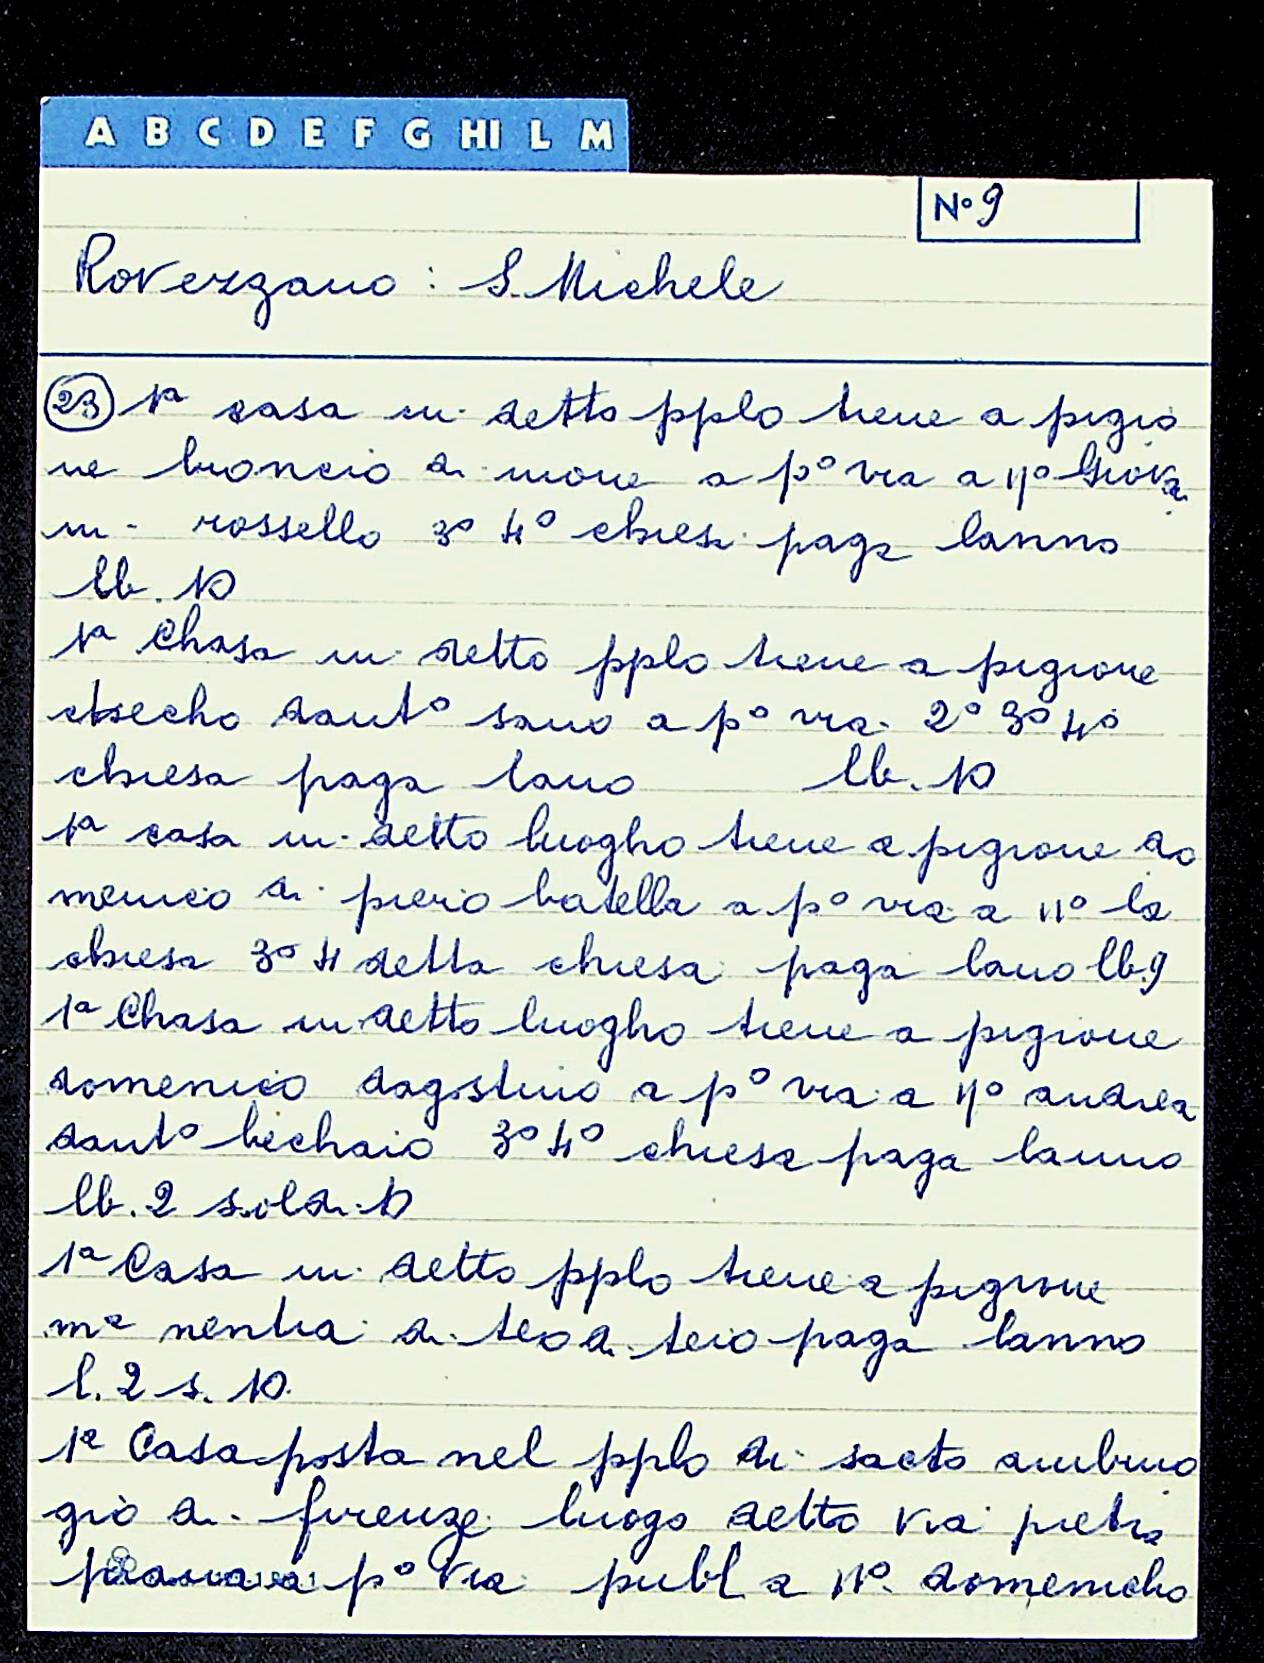 A B C D E F G HI L M
N° 9
Rovezzano : S. Michele
23 1ª casa in detto pplo tiene a pigio
ne broncio di mone a p° via a 11° Giova
ni rossello 3° 4° chiesa paga lanno
lb. 10
1ª Chasa in detto pplo tiene a pigione
checho dant° sano a p° via 2° 3° 4°
chiesa paga lano lb. 10
1ª casa in detto luogho tiene a pigione do
menico di piero batella a p° via a 11° la
chiesa 3° 4 detta chiesa paga lano lb. 9
1ª Chasa in detto luogho tiene a pigione
domenico dagostino a p° via a 11° andrea
dant° bechaio 3° 4° chiesa paga lanno
lb. 2 soldi 10
1ª Casa in detto pplo tiene a pigione
mª nentia di teo di teio paga lanno
l. 2 s. 10
1ª Casa posta nel pplo di sacto ambruo
gio di firenze luogo detto via pietra
a p° via publ a 11° domenicho